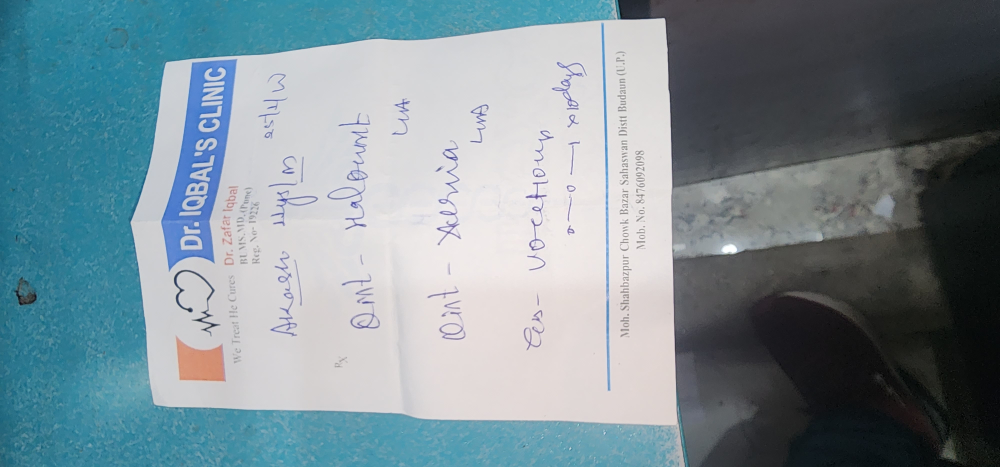 Dr. IQBAL'S CLINIC
We Treat He Cures
Dr. Zafar Iqbal
BUMS, MD, (Pune)
Reg. No- 19226
Akash
Rx
Oint - Halobumt
L/A
Oint - Xeernia
L/A
x 10days
Moh. Shahbazpur Chowk Bazar Sahaswan Distt Budaun (U.P.)
Mob. No. 8476092098